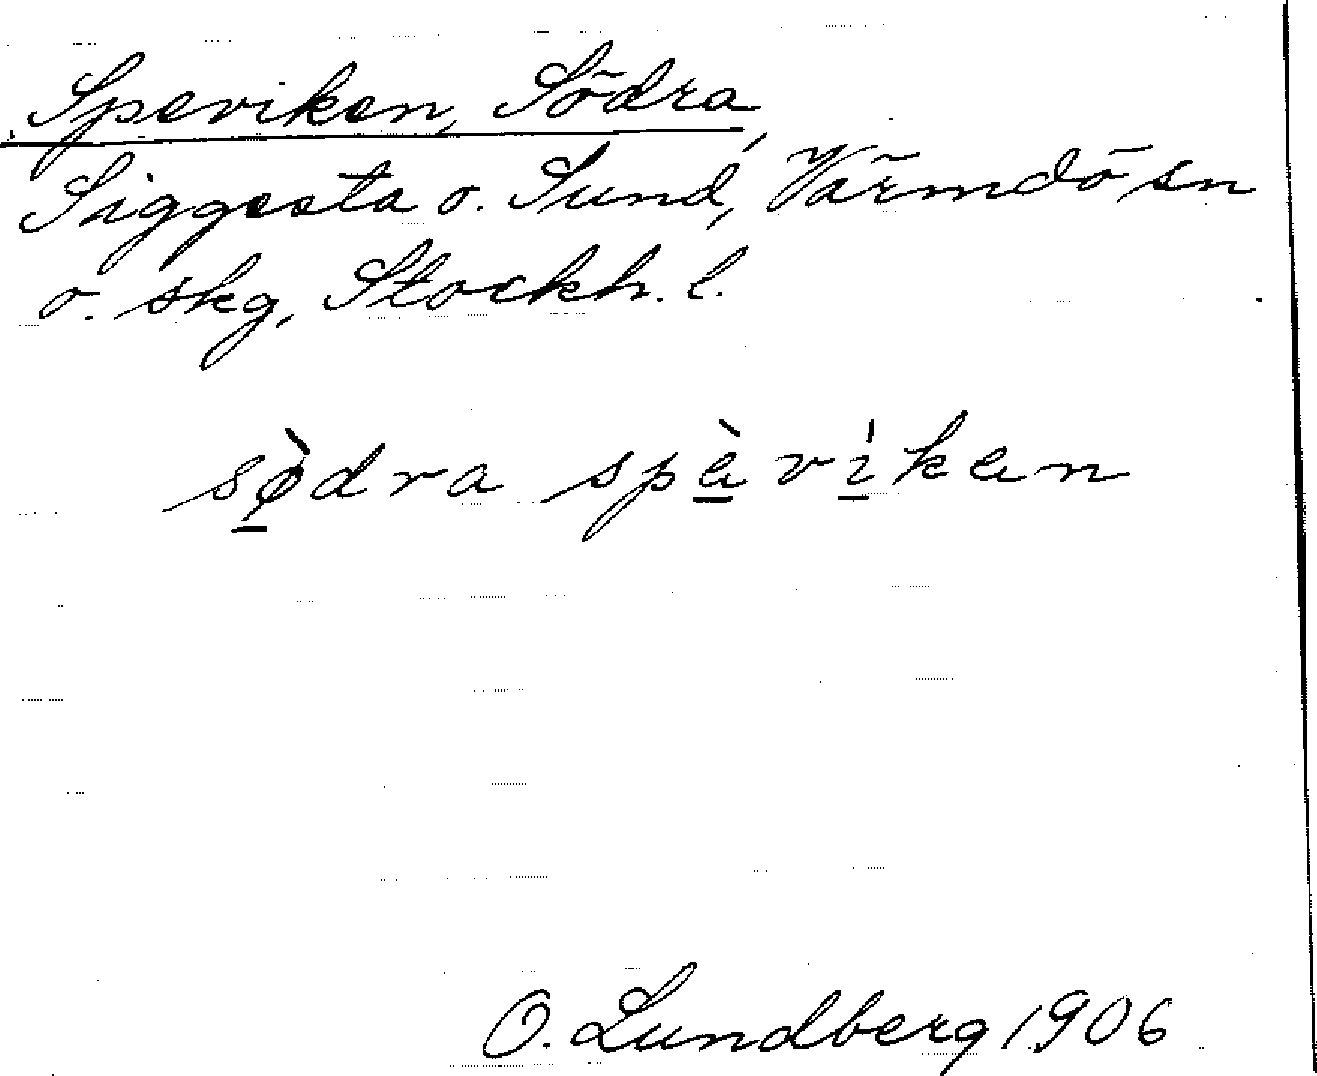 Speviken, Södra,
Siggesta o. Sund, Värmdö sn
o. skg, Stockh. l.
sø̀dra spèvíken
O. Lundberg 1906